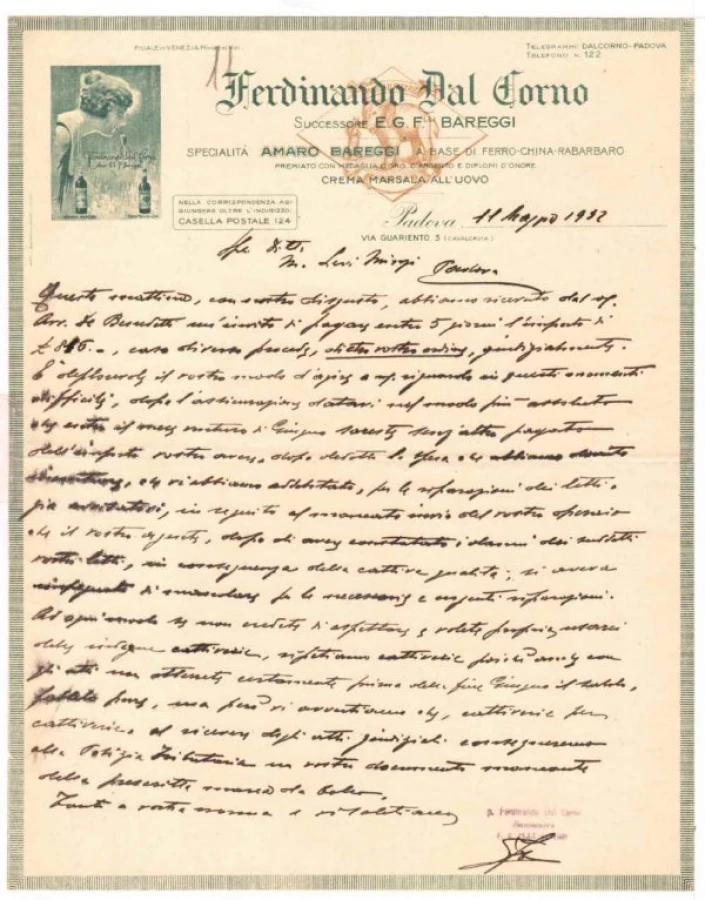 FILIALE in VENEZIA
TELEGRAMMI DALCORNO-PADOVA
TELEFONO N. 122
11
Ferdinando Dal Corno
SUCCESSORE E.G. Flli BAREGGI
SPECIALITÀ AMARO BAREGGI A BASE DI FERRO-CHINA-RABARBARO
PREMIATO CON MEDAGLIA D'ORO, D'ARGENTO E DIPLOMI D'ONORE
CREMA MARSALA ALL'UOVO
Ferdinando Dal Corno
NELLA CORRISPONDENZA AGGIUNGERE OLTRE L'INDIRIZZO:
CASELLA POSTALE 124
Padova 11 Maggio 1932
VIA GUARIENTO, 3 (CAVALCAVIA)
Spe. Ditta
M. Levi Minzi Padova
Questa mattina, con nostro disgusto, abbiamo ricevuto dal sig.
Avv. De Benedetti un'invito di pagare entro 5 giorni l'importo di
£ 816.-, caso diverso procede, dietro vostro ordine, giudizialmente.
È deplorevole il vostro modo d'agire a ns. riguardo in questi momenti
difficili, dopo l'assicurazione datavi nel modo più assoluto
che entro il mese venturo di Giugno sareste senz'altro pagati
dell'importo vostro avere, dopo dedotte le spese che abbiamo dovuto
che vi abbiamo addebitato, per le riparazioni dei letti,
già avvisatovi, in seguito al mancato invio del vostro operaio
che il vostro agente, dopo di aver constatato i danni dei suddetti
vostri letti, in conseguenza della cattiva qualità, si aveva
di mandare per le necessarie e urgenti riparazioni.
Ad ogni modo se non credete di aspettare e volete proprio usarci
delle indegne cattiverie, ripetiamo cattiverie poichè anche con
gli atti non otterrete certamente prima della fine Giugno il saldo,
fatelo pure, ma però vi avvertiamo che, cattiveria per
cattiveria, al ricevere degli atti giudiziali consegneremo
alla Polizia Tributaria un vostro documento mancante
della prescritta marca da bollo.
Tanto a vostra norma e vi salutiamo
p. Ferdinando Dal Corno